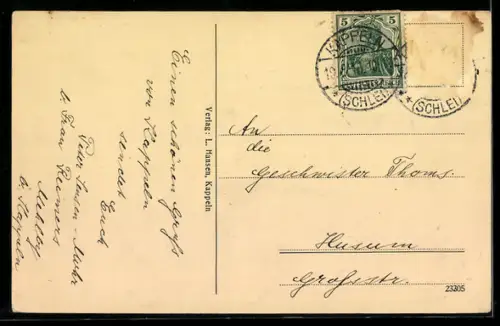 Einen schönen Gruß
von Kappeln
sendet
Euch
b. Frau Reimers
b. Kappeln
Verlag: L. Hansen, Kappeln
5 5
KAPPELN
*(SCHLEI)*
(SCHLEI)
An
die
Geschwister Thoms.
Husum
Großestr.
23305